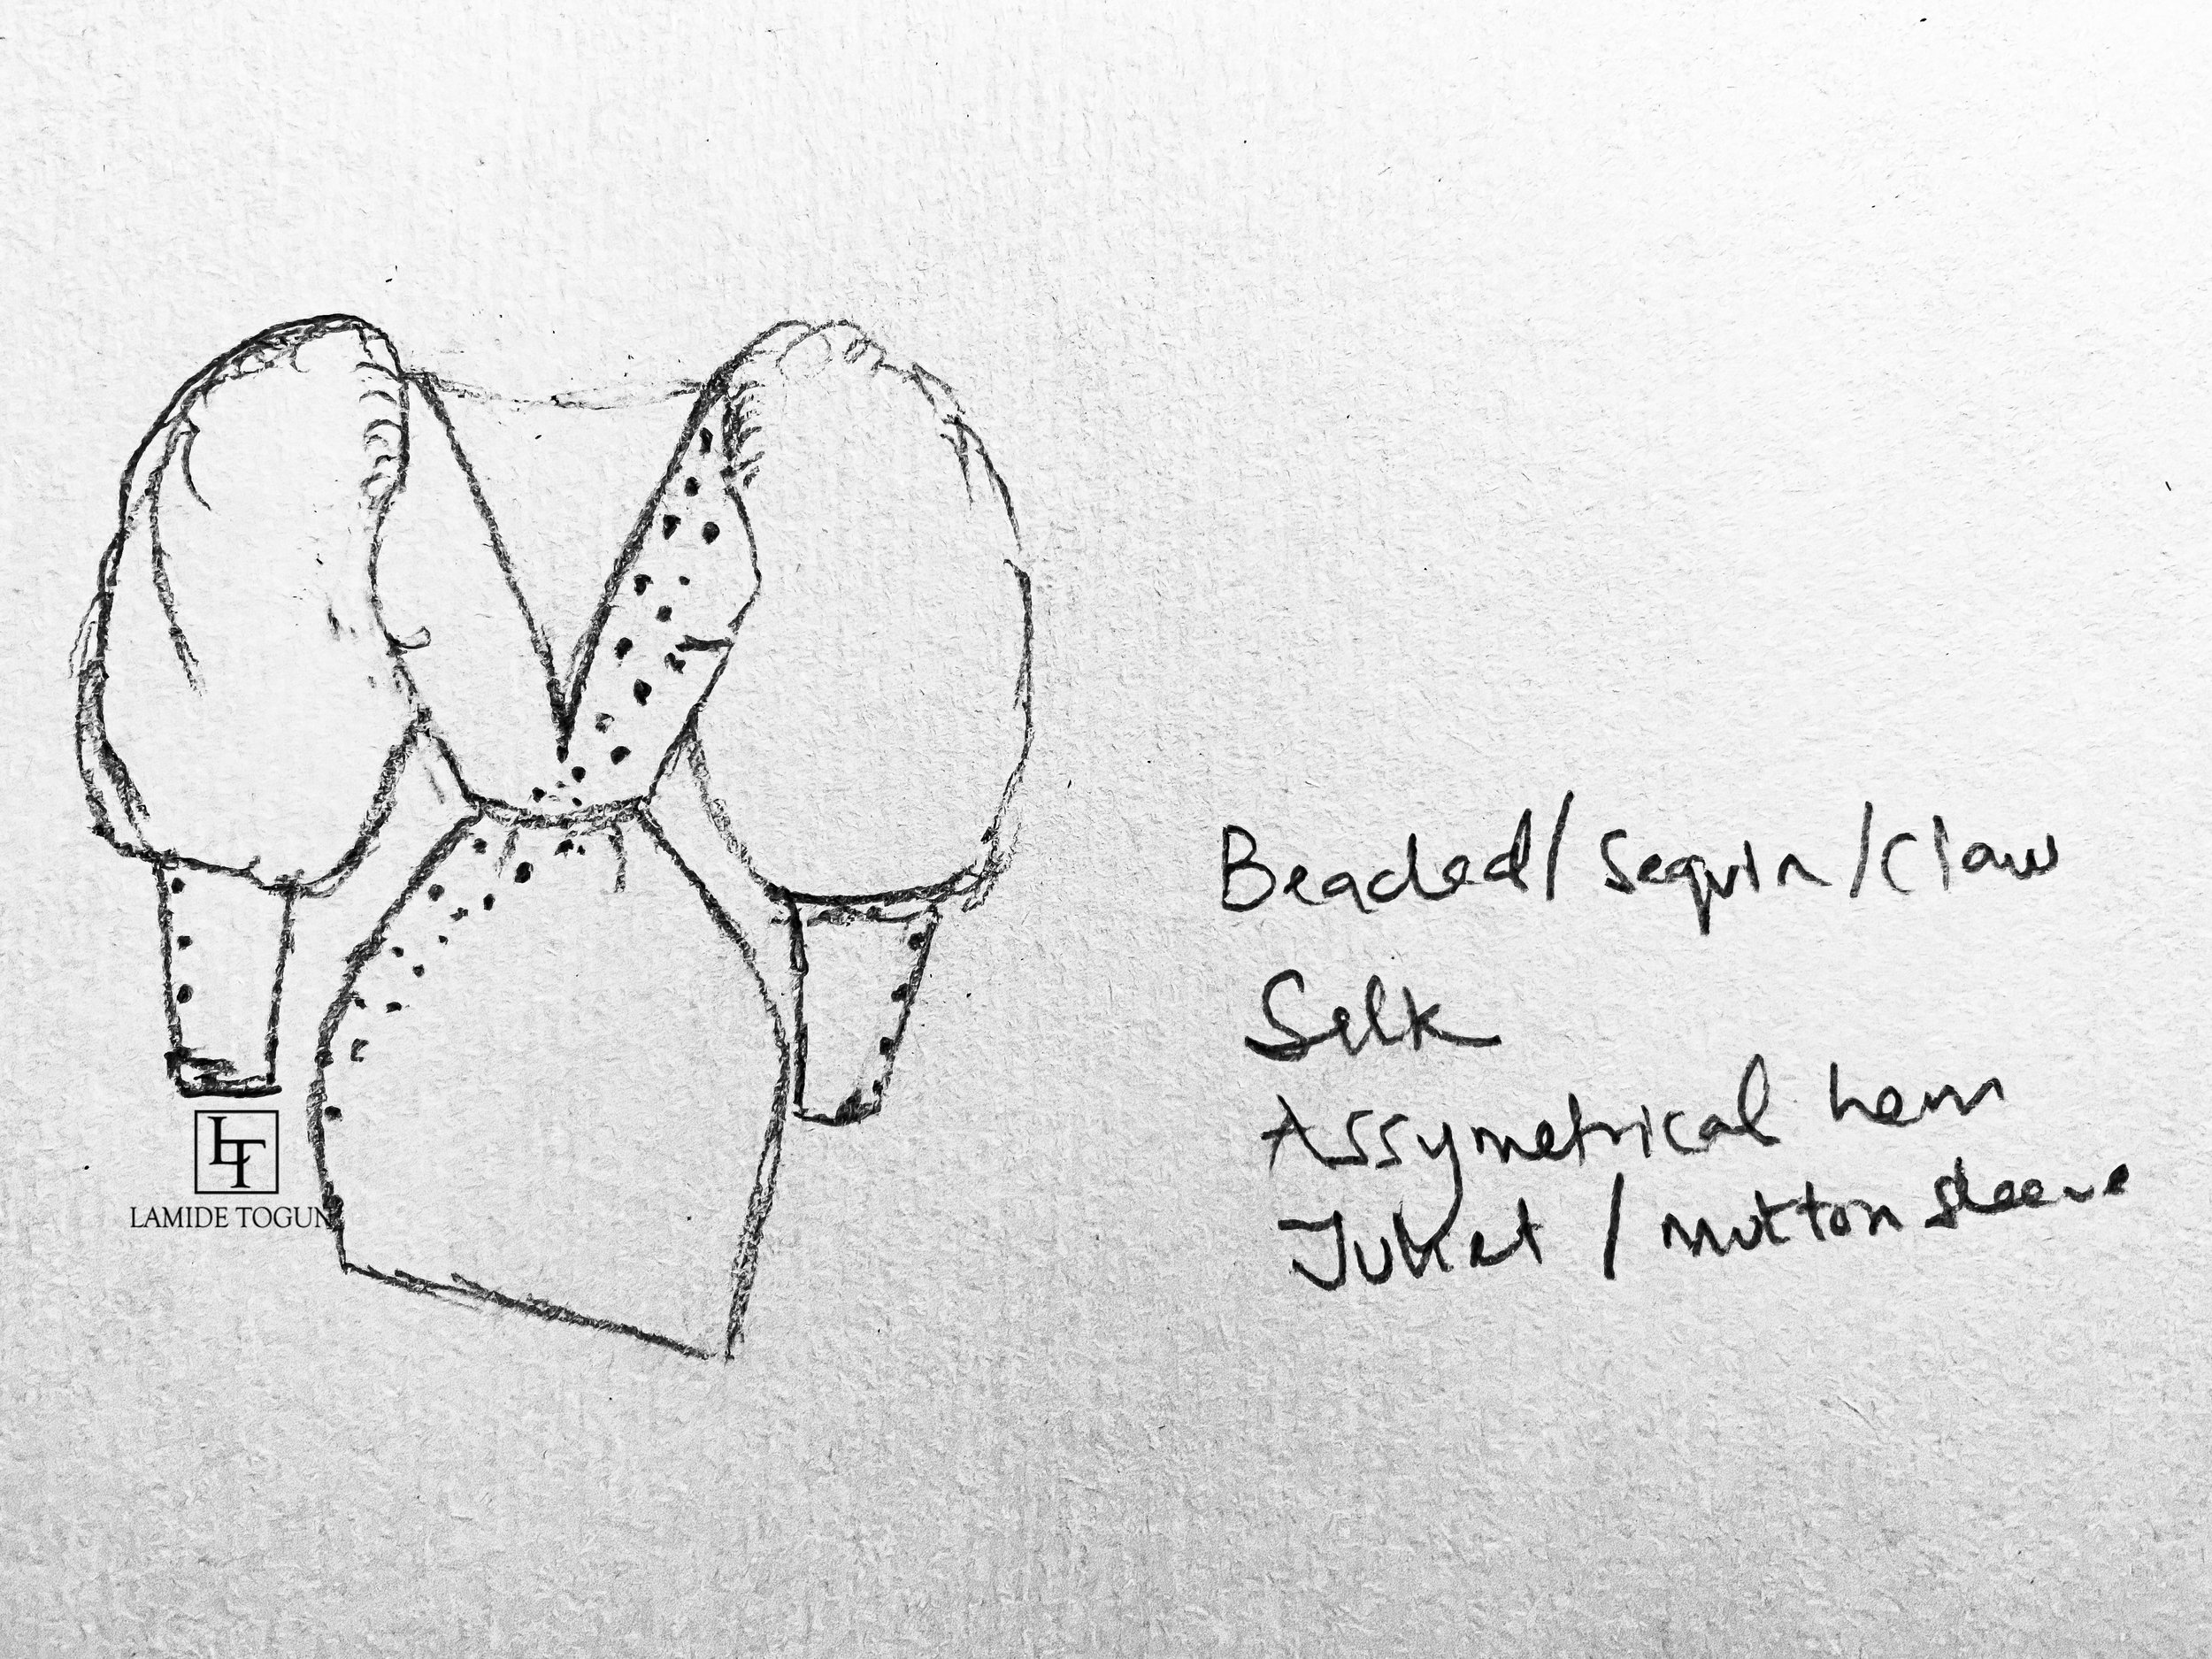 Beaded/Sequin/Claw
Silk
Assymetrical hem
Juliet / mutton sleeve
LT
LAMIDE TOGUN